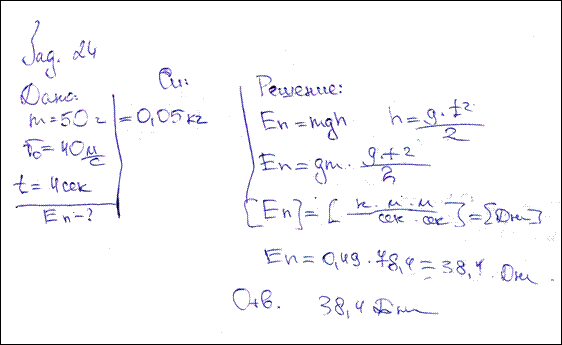 Зад. 24
Дано:
Си:
m = 50 г = 0,05 кг
v₀ = 40 м/с
t = 4 сек
Eп - ?
Решение:
Eп = mgh h = g·t²/2
Eп = gm · g·t²/2
[Eп] = [н·м·м/сек·сек] = [Дж]
Eп = 0,49 · 78,4 = 38,4 Дж
Отв. 38,4 Дж